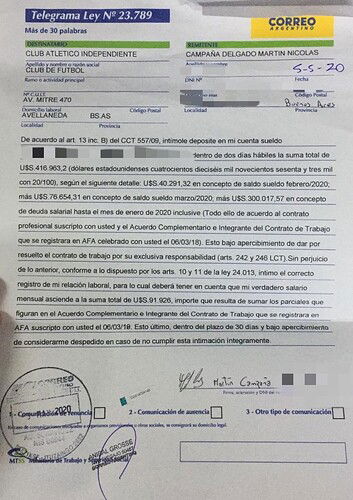 Telegrama Ley Nº 23.789
Más de 30 palabras
CORREO
ARGENTINO
DESTINATARIO
REMITENTE
CLUB ATLETICO INDEPENDIENTE
CAMPAÑA DELGADO MARTIN NICOLAS
Apellido y nombre o razón social
CLUB DE FUTBOL
5-5-20
Ramo o actividad principal
DNI Nº
Fecha
Nº C.U.I.T.
AV. MITRE 470
Código Postal
Domicilio laboral
Buenos Aires
AVELLANEDA
BS.AS
Código Postal
Localidad
Provincia
Localidad
Provincia
De acuerdo al art. 13 inc. B) del CCT 557/09, intimole deposite en mi cuenta sueldo
dentro de dos días hábiles la suma total de
U$S.416.963,2 (dólares estadounidenses cuatrocientos dieciséis mil novecientos sesenta y tres
mil con 20/100), según el siguiente detalle: U$S.40.291,32 en concepto de saldo sueldo febrero/2020;
más U$S.76.654,31 en concepto de saldo sueldo marzo/2020; más U$S.300.017,57 en concepto
de deuda salarial hasta el mes de enero de 2020 inclusive (Todo ello de acuerdo al contrato
profesional suscripto con usted y el Acuerdo Complementario e Integrante del Contrato de Trabajo
que se registrara en AFA celebrado con usted el 06/03/18). Esto bajo apercibimiento de dar por
resuelto el contrato de trabajo por su exclusiva responsabilidad (arts. 242 y 246 LCT).Sin perjuicio
de lo anterior, conforme a lo dispuesto por los arts. 10 y 11 de la ley 24.013, intimo el correcto
registro de mi relación laboral, para lo cual deberá tener en cuenta que mi verdadero salario
mensual asciende a la suma total de U$S.91.926, importe que resulta de sumar los parciales que
figuran en el Acuerdo Complementario e Integrante del Contrato de Trabajo que se registrara en
AFA suscripto con usted el 06/03/18. Esto último, dentro del plazo de 30 días y bajo apercibimiento
de considerarme despedido en caso de no cumplir esta intimación íntegramente.
Martin Campaña
CORREO
2020
1 - Comunicación de renuncia
2 - Comunicación de ausencia
3 - Otro tipo de comunicación
ANIBAL GROSSE
Ministerio de Trabajo y